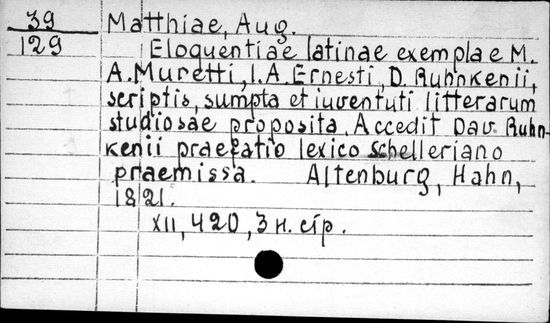 39
129
Matthiae, Aug.
Eloquentiae latinae exempla e M.
A. Muretti, I. A. Ernesti, D. Ruhnkenii,
scriptis, sumpta et iuventuti litterarum
studiosae proposita. Accedit Dav. Ruhn-
kenii praefatio lexico Schelleriano
praemissa. Altenburg, Hahn,
1821.
XII, 420, 3 н. стр.